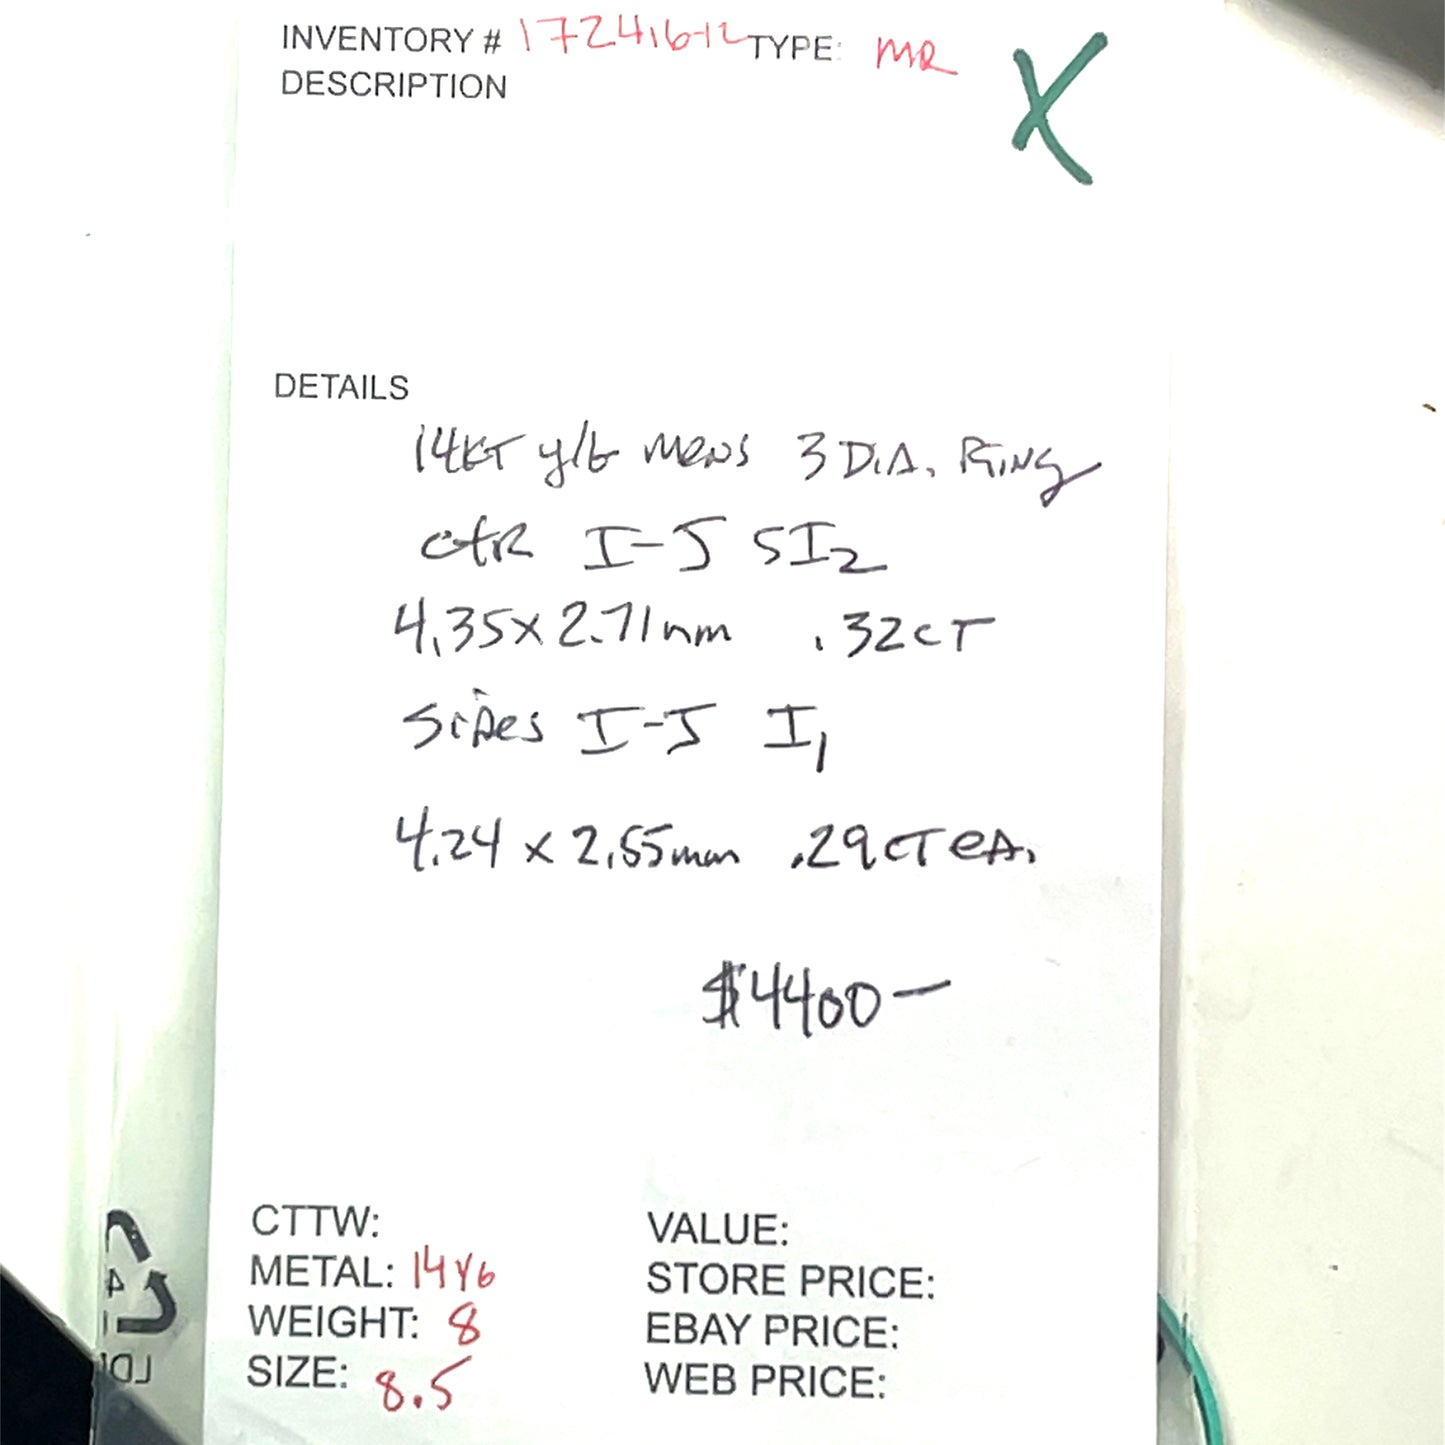 INVENTORY # 172416-12 TYPE: MR
X
DESCRIPTION
DETAILS
14KT y/G MENS 3 DIA. RING
CTR I-J SI2
4.35 x 2.71mm .32CT
SIDES I-J I1
4.24 x 2.55mm .29CT EA.
$4400-
CTTW:
METAL: 14YG
WEIGHT: 8
SIZE: 8.5
VALUE:
STORE PRICE:
EBAY PRICE:
WEB PRICE:
4